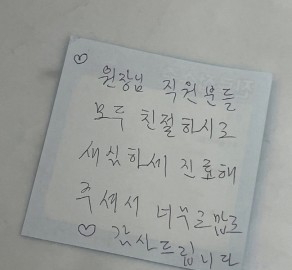 ♡
원장님 직원분들
모두 친절하시고
세심하게 진료해
주셔서 너무 고맙고
♡ 감사드립니다